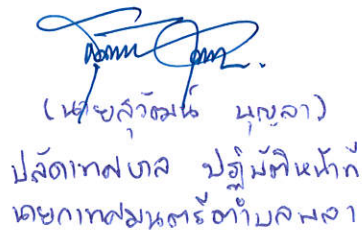 (นายสุวัฒน์ บุญลา)
ปลัดเทศบาล ปฏิบัติหน้าที่
นายกเทศมนตรีตำบลพลา